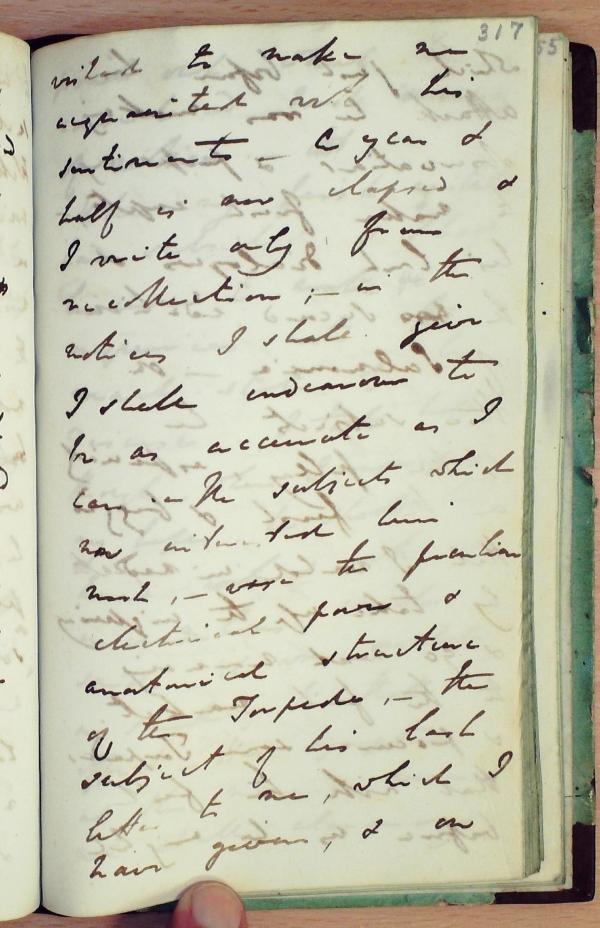 317
55
wished to make me
acquainted with his
sentiments – A year &
half is now elapsed &
I write only from
recollection; – in the
notices I shall give
I shall endeavour to
be as accurate as I
can – The subjects which
now interested him
most, – were the peculiar
electrical power &
anatomical structure
of the Torpedo, – the
subject of his last
letter to me, which I
have given, & on